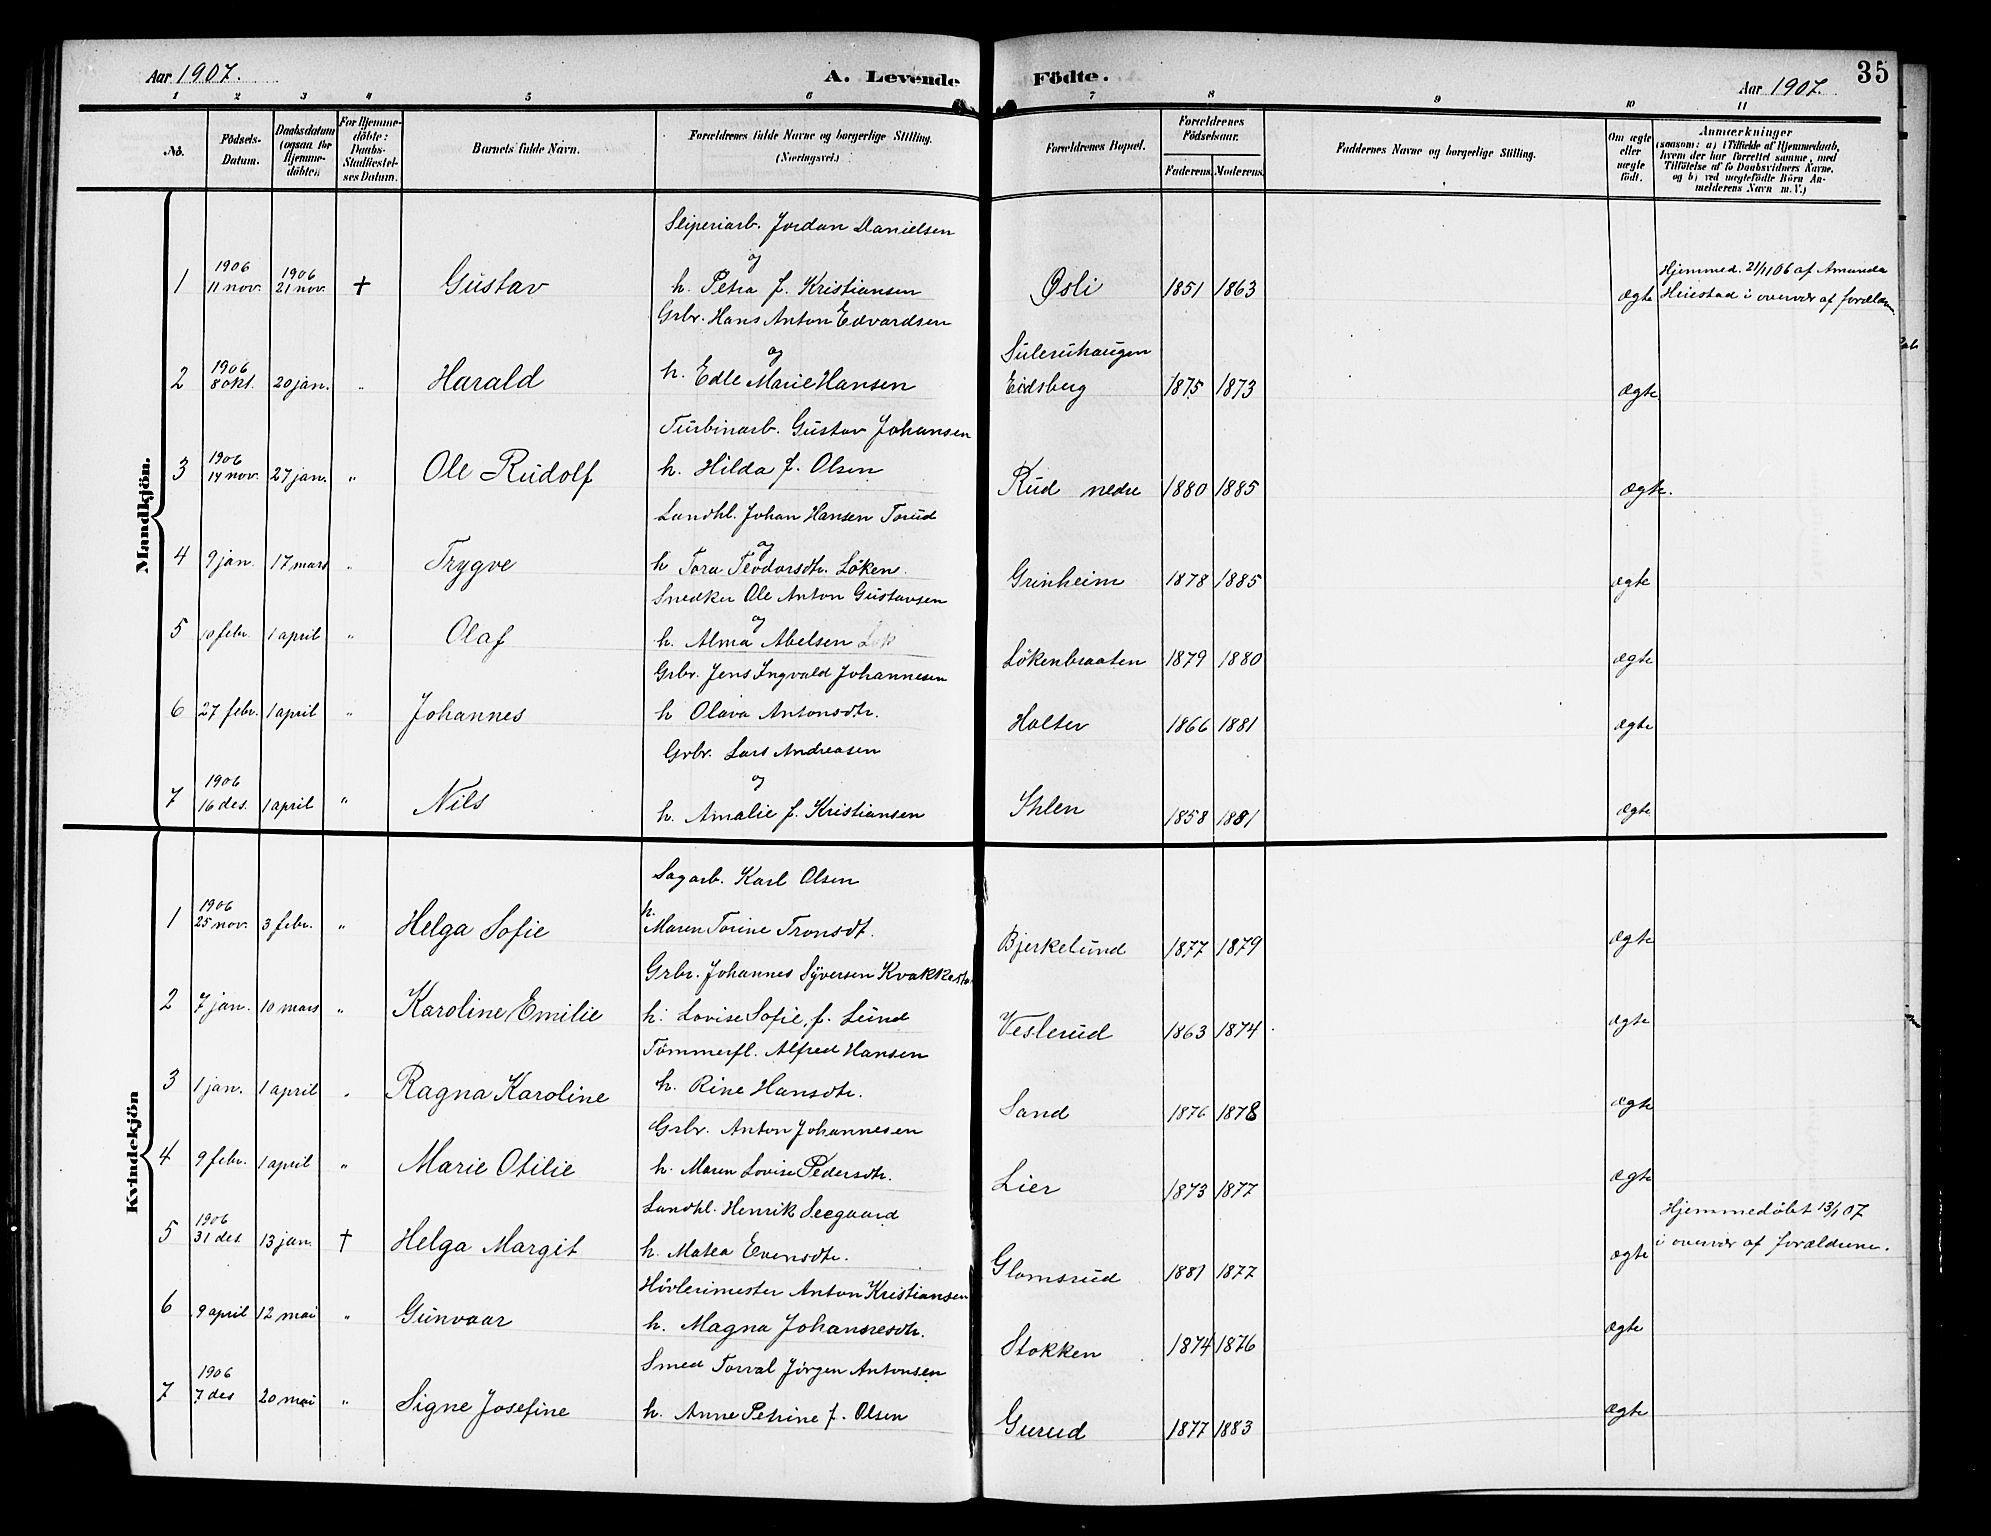 Aar 1907.
A. Levende Födte.
35
Aar 1907.
1 2 3 4 5 6 7 8 9 10 11
No.
Födsels-Datum.
Daabsdatum (ogsaa for Hjemme-döbte).
For Hjemme-döbte: Daabs-Stadfæstel-ses Datum.
Barnets fulde Navn.
Forældrenes fulde Navne og borgerlige Stilling. (Næringsvei.)
Forældrenes Bopæl.
Forældrenes Födselsaar.
Faderens. Moderens.
Faddernes Navne og borgerlige Stilling.
Om ægte eller uægte födt.
Anmærkninger
(saasom: a) i Tilfælde af Hjemmedaab,
hvem der har forrettet samme, med
Tilföielse af to Daabsvidners Navne,
og b) ved uægtefödte Börn An-
melderens Navn m. V.)
Mandkjön.
Sliperiarb. Jordan Danielsen
og
1 1906 11 nov. 1906 21 nov. † Gustav h. Petra f. Kristiansen Øsli 1851 1863 ægte Hjemmed. 21/11 06 af Amanda
Heiestad i overvær af forældr.
Grbr. Hans Anton Edvardsen
og
2 1906 8 okt. 20 jan. " Harald h. Edle Marie Hansen Suleruhaugen
Eidsberg 1875 1873 ægte
Turbinarb. Gustav Johansen
3 1906 14 nov. 27 jan. " Ole Rudolf h. Hilda f. Olsen Rud nedre 1880 1885 ægte.
Landhl. Johan Hansen Torud
og
4 9 jan. 17 mars " Trygve h Tora Teodorsdtr. Löken. Grinheim 1878 1885 ægte
Snedker Ole Anton Gustavsen
og
5 10 febr. 1 april " Olaf h. Alma Abelsen Lökenbraaten 1879 1880 ægte
Grbr. Jens Ingvald Johannesen
6 27 febr. 1 april " Johannes h Olava Antonsdtr. Holter 1866 1881 ægte
Grbr. Lars Andreasen
og
7 1906 16 des. 1 april " Nils h. Amalie f. Kristiansen Ihlen 1858 1881 ægte
Kvindekjön
Sagarb. Karl Olsen
h.
1 1906 25 nov. 3 febr. " Helga Sofie Maren Torine Tronsdt. Bjerkelund 1877 1879 ægte
Grbr. Johannes Syversen
2 7 jan. 10 mars " Karoline Emilie h. Lovise Sofie, f. Lund Veslerud 1863 1874 ægte
Tömmerfl. Alfred Hansen
3 1 jan. 1 april " Ragna Karoline h. Rine Hansdtr. Sand 1876 1878 ægte
Grbr. Anton Johannesen
4 9 febr. 1 april " Marie Otilie h. Maren Lovise Pedersdtr. Lier 1873 1877 ægte
Landhl. Henrik Seegaard
5 1906 31 des 13 jan. † Helga Margit h. Matea Evensdtr. Glomsrud 1881 1877 ægte Hjemmedøbt 13/1 07
i overvær af forældrene.
Hövlerimester Anton Kristiansen
6 9 april 12 mai " Gunvaar h. Magna Johannesdtr. Stokken 1874 1876 ægte
Smed Torval Jörgen Antonsen
7 1906 7 des 20 mai " Signe Josefine h. Anne Petrine f. Olsen Gurud 1877 1883 ægte